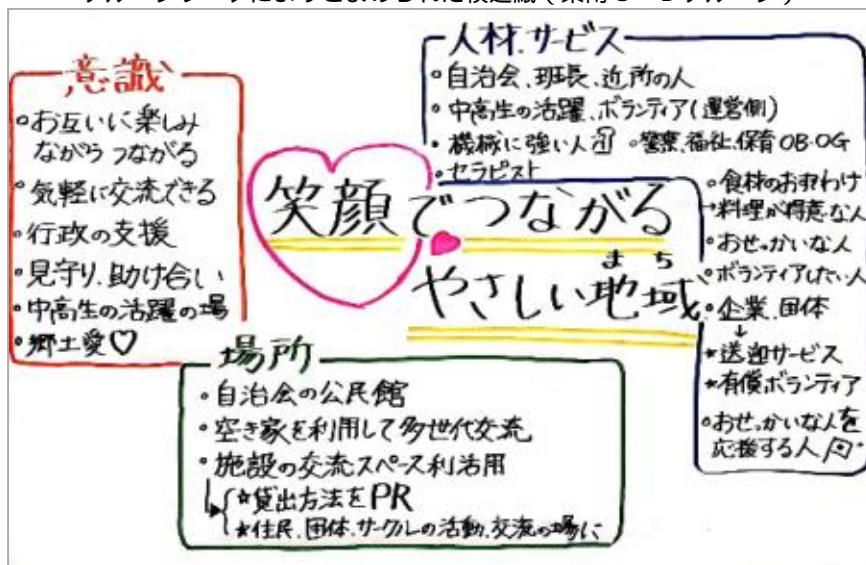 意識
・お互いに楽しみ
ながらつながる
・気軽に交流できる
・行政の支援
・見守り、助け合い
・中高生の活躍の場
・郷土愛♡
人材・サービス
・自治会、班長、近所の人
・中高生の活躍、ボランティア(運営側)
・機械に強い人 ・警察、福祉、保育OB・OG
・セラピスト
・食材のおすそわけ
→料理が得意な人
・おせっかいな人
・ボランティアしたい人
・企業、団体
↓
★送迎サービス
★有償ボランティア
・おせっかいな人を
応援する人
笑顔でつながる
まち
やさしい地域
場所
・自治会の公民館
・空き家を利用して多世代交流
・施設の交流スペース利活用
→★貸出方法をPR
★住民、団体、サークルの活動、交流の場に